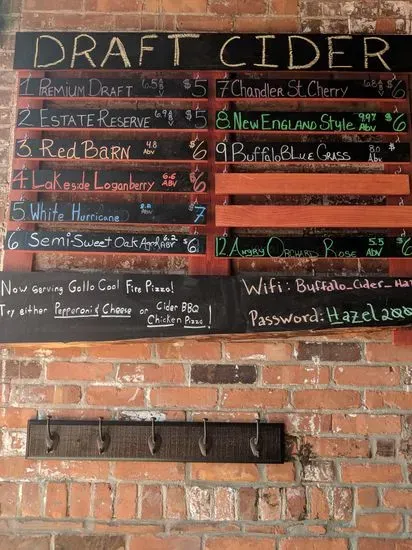 DRAFT CIDER
1 PREMIUM DRAFT 6.5 ABV $5
2 ESTATE RESERVE 6.9 ABV $5
3 RED BARN 4.8 ABV $6
4 LAKESIDE LOGANBERRY 6.6 ABV $6
5 WHITE HURRICANE 8.2 ABV $7
6 SEMI-SWEET OAK AGED 6.2 ABV $6
7 CHANDLER ST. CHERRY 6.8 ABV $5
8 NEW ENGLAND STYLE 9.9% ABV $6
9 BUFFALO BLUE GRASS ABV $
12 ANGRY ORCHARD ROSE 5.5 ABV $6
NOW SERVING GALLO COOL FIRE PIZZA!
TRY EITHER PEPPERONI & CHEESE OR CIDER BBQ
CHICKEN PIZZA!
WiFi: Buffalo_Cider_Ha
Password: Hazel2020